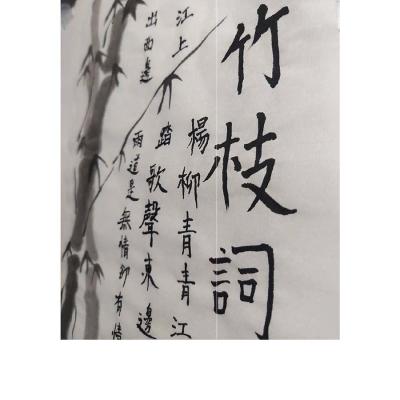 竹枝詞
楊柳青青江
江上踏歌聲東邊
出西邊雨道是無情却有情